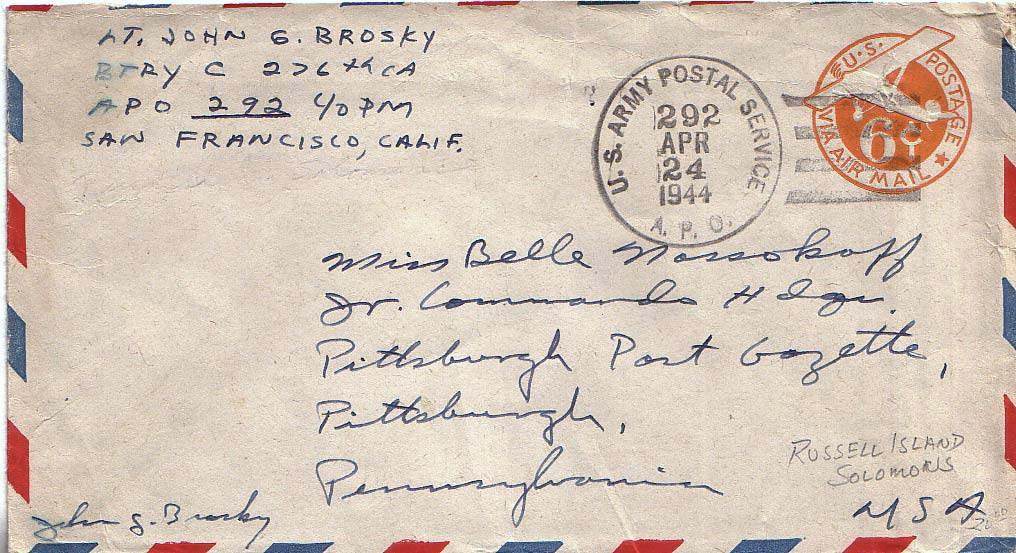 LT. JOHN G. BROSKY
BTRY C 276th CA
APO 292 c/o PM
SAN FRANCISCO, CALIF.
U.S. ARMY POSTAL SERVICE
292
APR
24
1944
A. P. O.
U.S. POSTAGE
6¢
VIA AIR MAIL
Miss Belle
Jr. Commando Hdqu.
Pittsburgh Post Gazette,
Pittsburgh,
Pennsylvania
RUSSELL ISLAND
SOLOMONS
USA
John G. Brosky